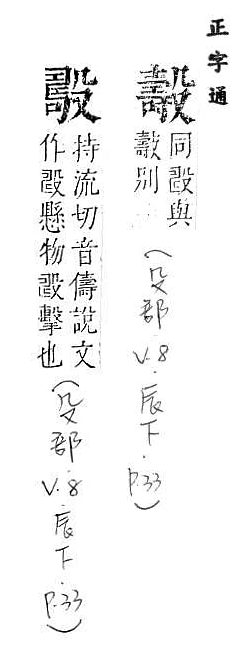 正字通
同與
別
(殳部 V.8.辰下.P.33)
持流切音儔說文
作懸物擊也
(殳部 V.8.辰下.P.33)